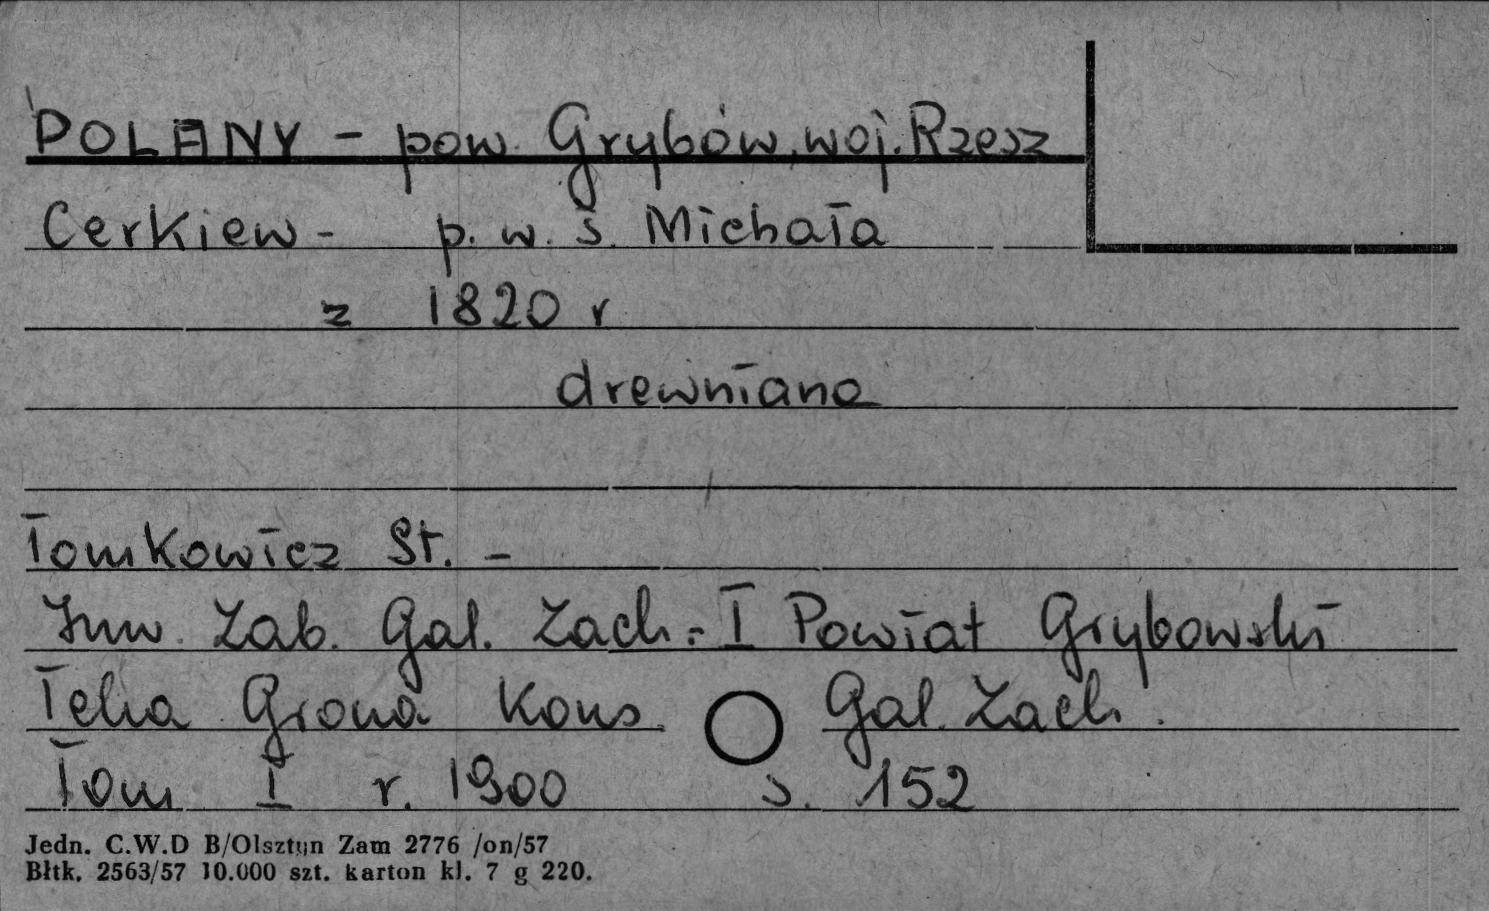 POLANY - pow. Grybów, woj. Rzesz
Cerkiew - p. w. ś. Michała
z 1820 r
drewniana
Tomkowicz St. -
Inw. Zab. Gal. Zach. - I Powiat Grybowski
Teka Grona Kons. Gal. Zach.
Tom I r. 1900 s. 152
Jedn. C.W.D B/Olsztyn Zam 2776 /on/57
Błtk. 2563/57 10.000 szt. karton kl. 7 g 220.